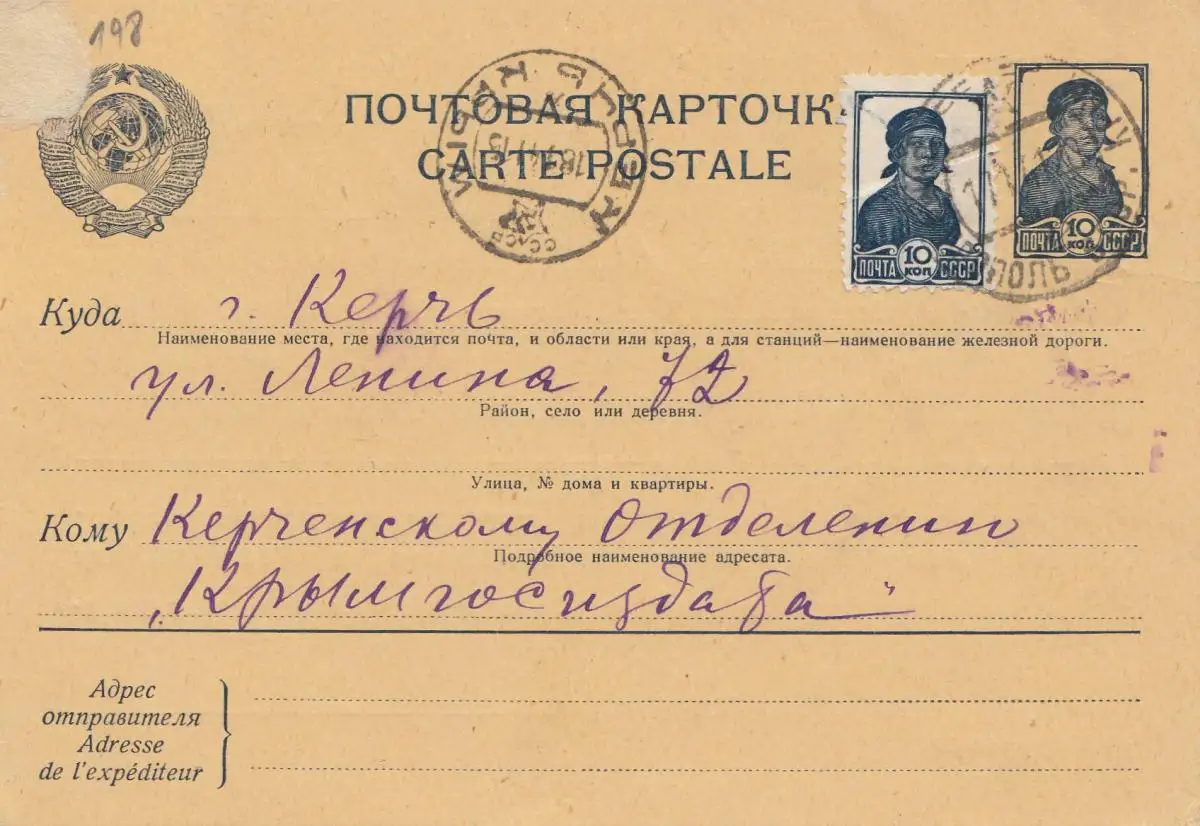 198
ПОЧТОВАЯ КАРТОЧК
CARTE POSTALE
ПОЧТА 10 КОП СССР
ПОЧТА 10 КОП СССР
КЕРЧЬ КРЫМ
СССР
Куда г. Керчь
Наименование места, где находится почта, и области или края, а для станций—наименование железной дороги.
ул. Ленина, 72
Район, село или деревня.
Улица, № дома и квартиры.
Кому Керченскому отделению
Подробное наименование адресата.
„Крымгосиздата"
Адрес
отправителя
Adresse
de l'expéditeur